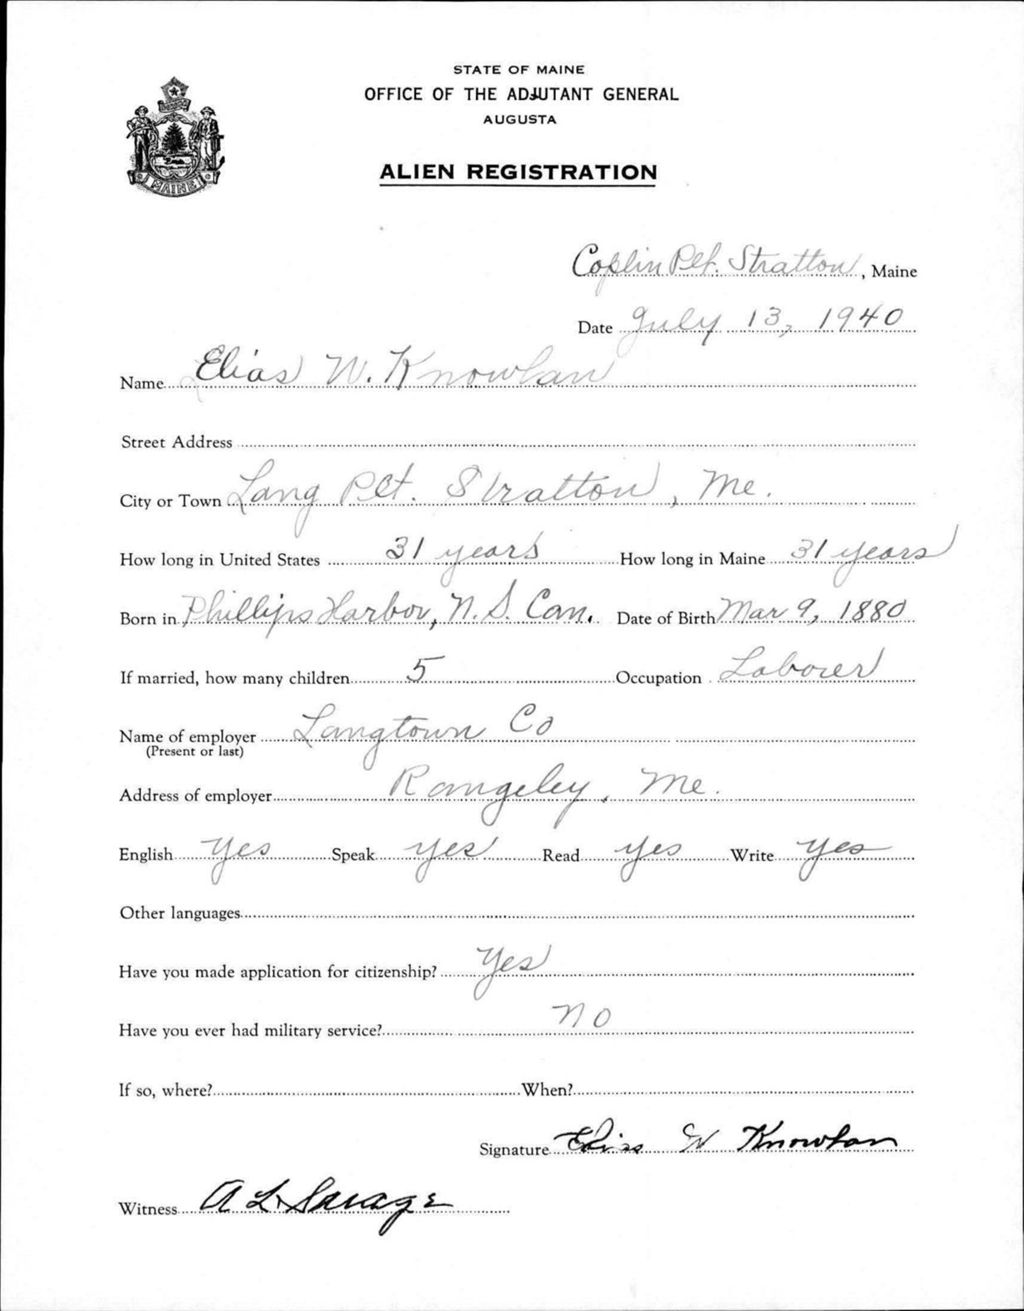 STATE OF MAINE
OFFICE OF THE ADJUTANT GENERAL
AUGUSTA
ALIEN REGISTRATION
MAINE
Coplin Plt. Stratton, Maine
Date July 13, 1940
Name Elias W. Knowlan
Street Address
City or Town Lang Plt. Stratton, Me.
How long in United States 31 years How long in Maine 31 years
Born in Phillips Harbor, N.S. Can. Date of Birth Mar 9, 1880
If married, how many children 5 Occupation Laborer
Name of employer Langtown Co
(Present or last)
Address of employer Rangeley, Me.
English Yes Speak yes Read yes Write yes
Other languages
Have you made application for citizenship? Yes
Have you ever had military service? no
If so, where? When?
Signature Elias W Knowlan
Witness A L Savage